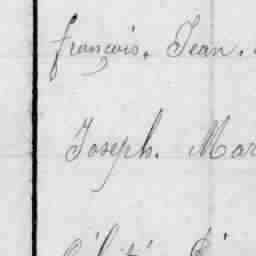 françois. Jean.
Joseph. Mar